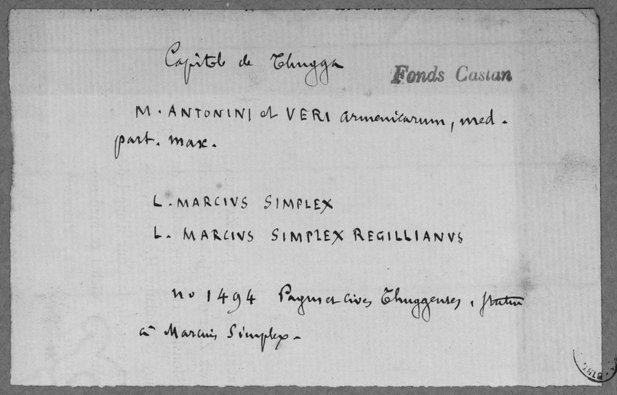 Capitole de Thugga
Fonds Castan
M. ANTONINI et VERI armenicarum, med.
part. max.
L. MARCIVS SIMPLEX
L. MARCIVS SIMPLEX REGILLIANVS
no 1494 Pagus et cives Thuggenses, statue
à Marcius Simplex.